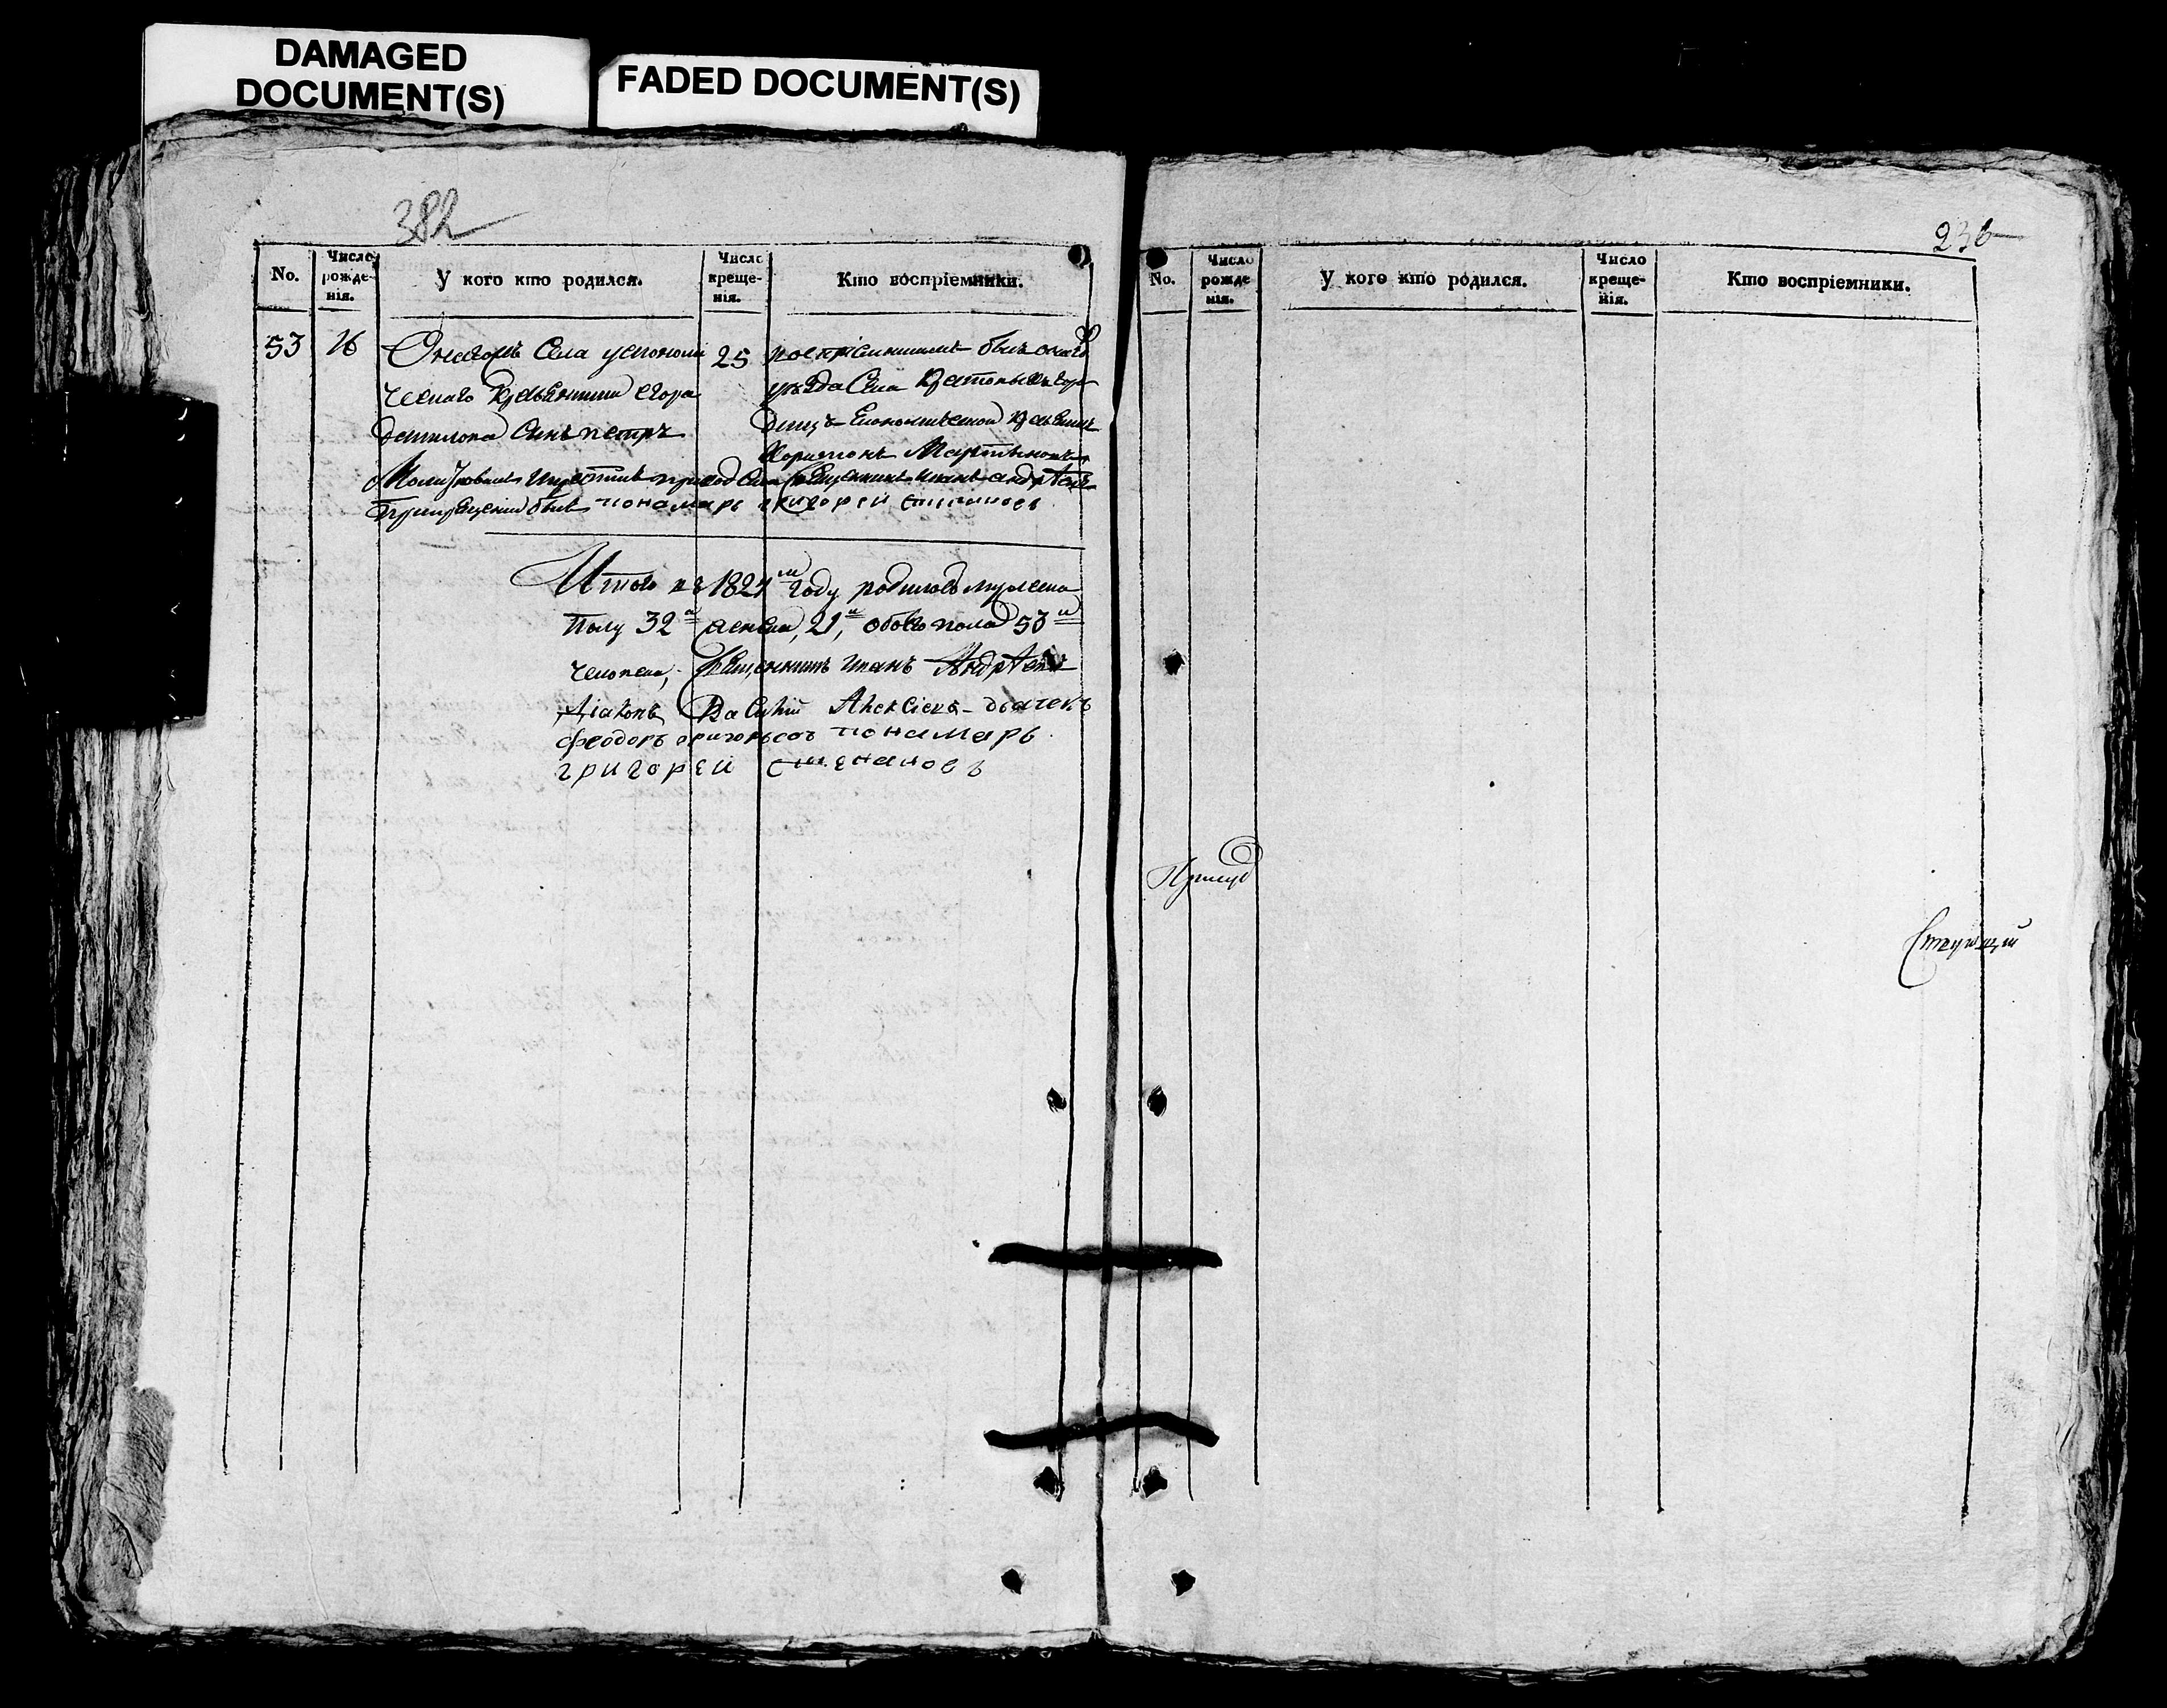 DAMAGED
DOCUMENT(S)
FADED DOCUMENT(S)
382
No.
Число
рожде-
нія.
У кого кто родился.
Число
креще-
нія.
Кто воспріемники.
53
16
Онагожъ села економи
ческаго крестьянина егора
данилова сынъ петръ
25
воспріемникомъ былъ онаго
уѣзда села
экономической
Харитонъ Мартыновъ
Молитвовалъ икрестилъ приход села священникъ иванъ андрѣевъ
Прикрещении былъ понамарь григорей степановъ
Итого въ 1824 м году родилось мужеска
полу 32 а женска, 21, и обоего пола 53 и
человека, священникъ иванъ Андрѣевъ
діаконъ Василій Алексіевъ дьячекъ
феодоръ григорьевъ понамарь
григорей степановъ
236
No.
Число
рожде
нія.
У кого кто родился.
Число
креще-
нія.
Кто воспріемники.